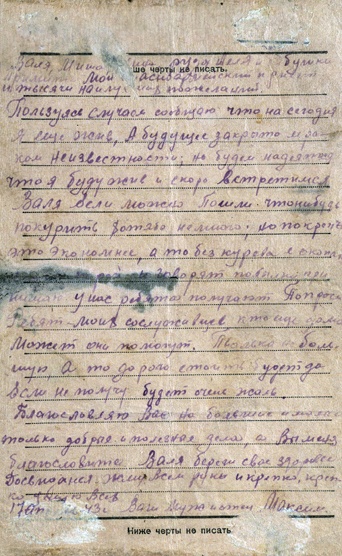 ше черты не писать.
Валя, Миша
примите мой красноармейский привет
и тысячи наилучших пожеланий.
Пользуясь случаем сообщаю что на сегодня
я еще жив, а будущее закрыто мра-
ком неизвестности; но будем надеяться
что я буду жив и скоро встретимся
Валя если можно пошли что нибудь
покурить хотябы немного, но покрепче
это экономнее, а то без курева
говорят
у нас ребята получают Попроси
ребят моих сослуживцев кто еще дома
может они помогут. Только не боль-
шую а то дорого стоить будет да
если не получу будет очень жаль
Благославляю Вас на большие и малые
только добрые и полезные дела, а Вы меня
благословите. Валя береги свое здоровье
Досвидания. Жму всем руки и крепко, креп-
ко целую всех
43 г. Ваш муж и отец Максим
Ниже черты не писать